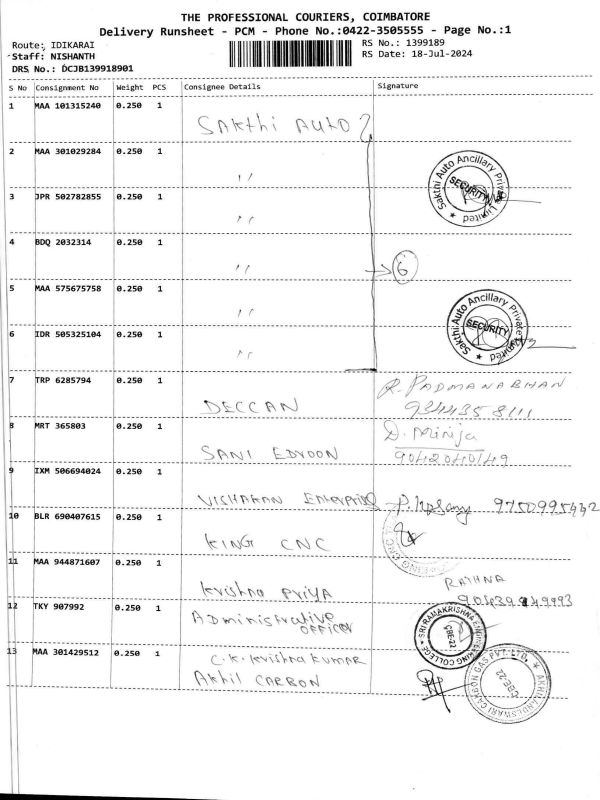 THE PROFESSIONAL COURIERS, COIMBATORE
Delivery Runsheet - PCM - Phone No.:0422-3505555 - Page No.:1
Route: IDIKARAI
Staff: NISHANTH
DRS No.: DCJB139918901
RS No.: 1399189
RS Date: 18-Jul-2024
S No Consignment No Weight PCS Consignee Details Signature
1 MAA 101315240 0.250 1 SAKthi AUTO
2 MAA 301029284 0.250 1 〃 Sakthi Auto Ancillary Private Limited ★ SECURITY
3 JPR 502782855 0.250 1 〃
4 BDQ 2032314 0.250 1 〃 → 6
5 MAA 575675758 0.250 1 〃 Sakthi Auto Ancillary Private Limited ★ SECURITY
6 IDR 505325104 0.250 1 〃
7 TRP 6285794 0.250 1 DECCAN R. PADMANABHAN
8 MRT 365803 0.250 1 SANI EDYOON D. Mrinja
9042040149
9 IXM 506694024 0.250 1 VISHAKAN ENterprises 9750995442
10 BLR 690407615 0.250 1 KING CNC
11 MAA 944871607 0.250 1 Krishna PRIYA RATHNA
12 TKY 907992 0.250 1 Administrative
OFFICER
SRI RAMAKRISHNA ENGINEERING COLLEGE ★ CBE-22
13 MAA 301429512 0.250 1 C.K. Krishna KUMAR
AKhil CARBON
AKHILANDESWARI CARBON GAS PVT. LTD. ★ CBE-22